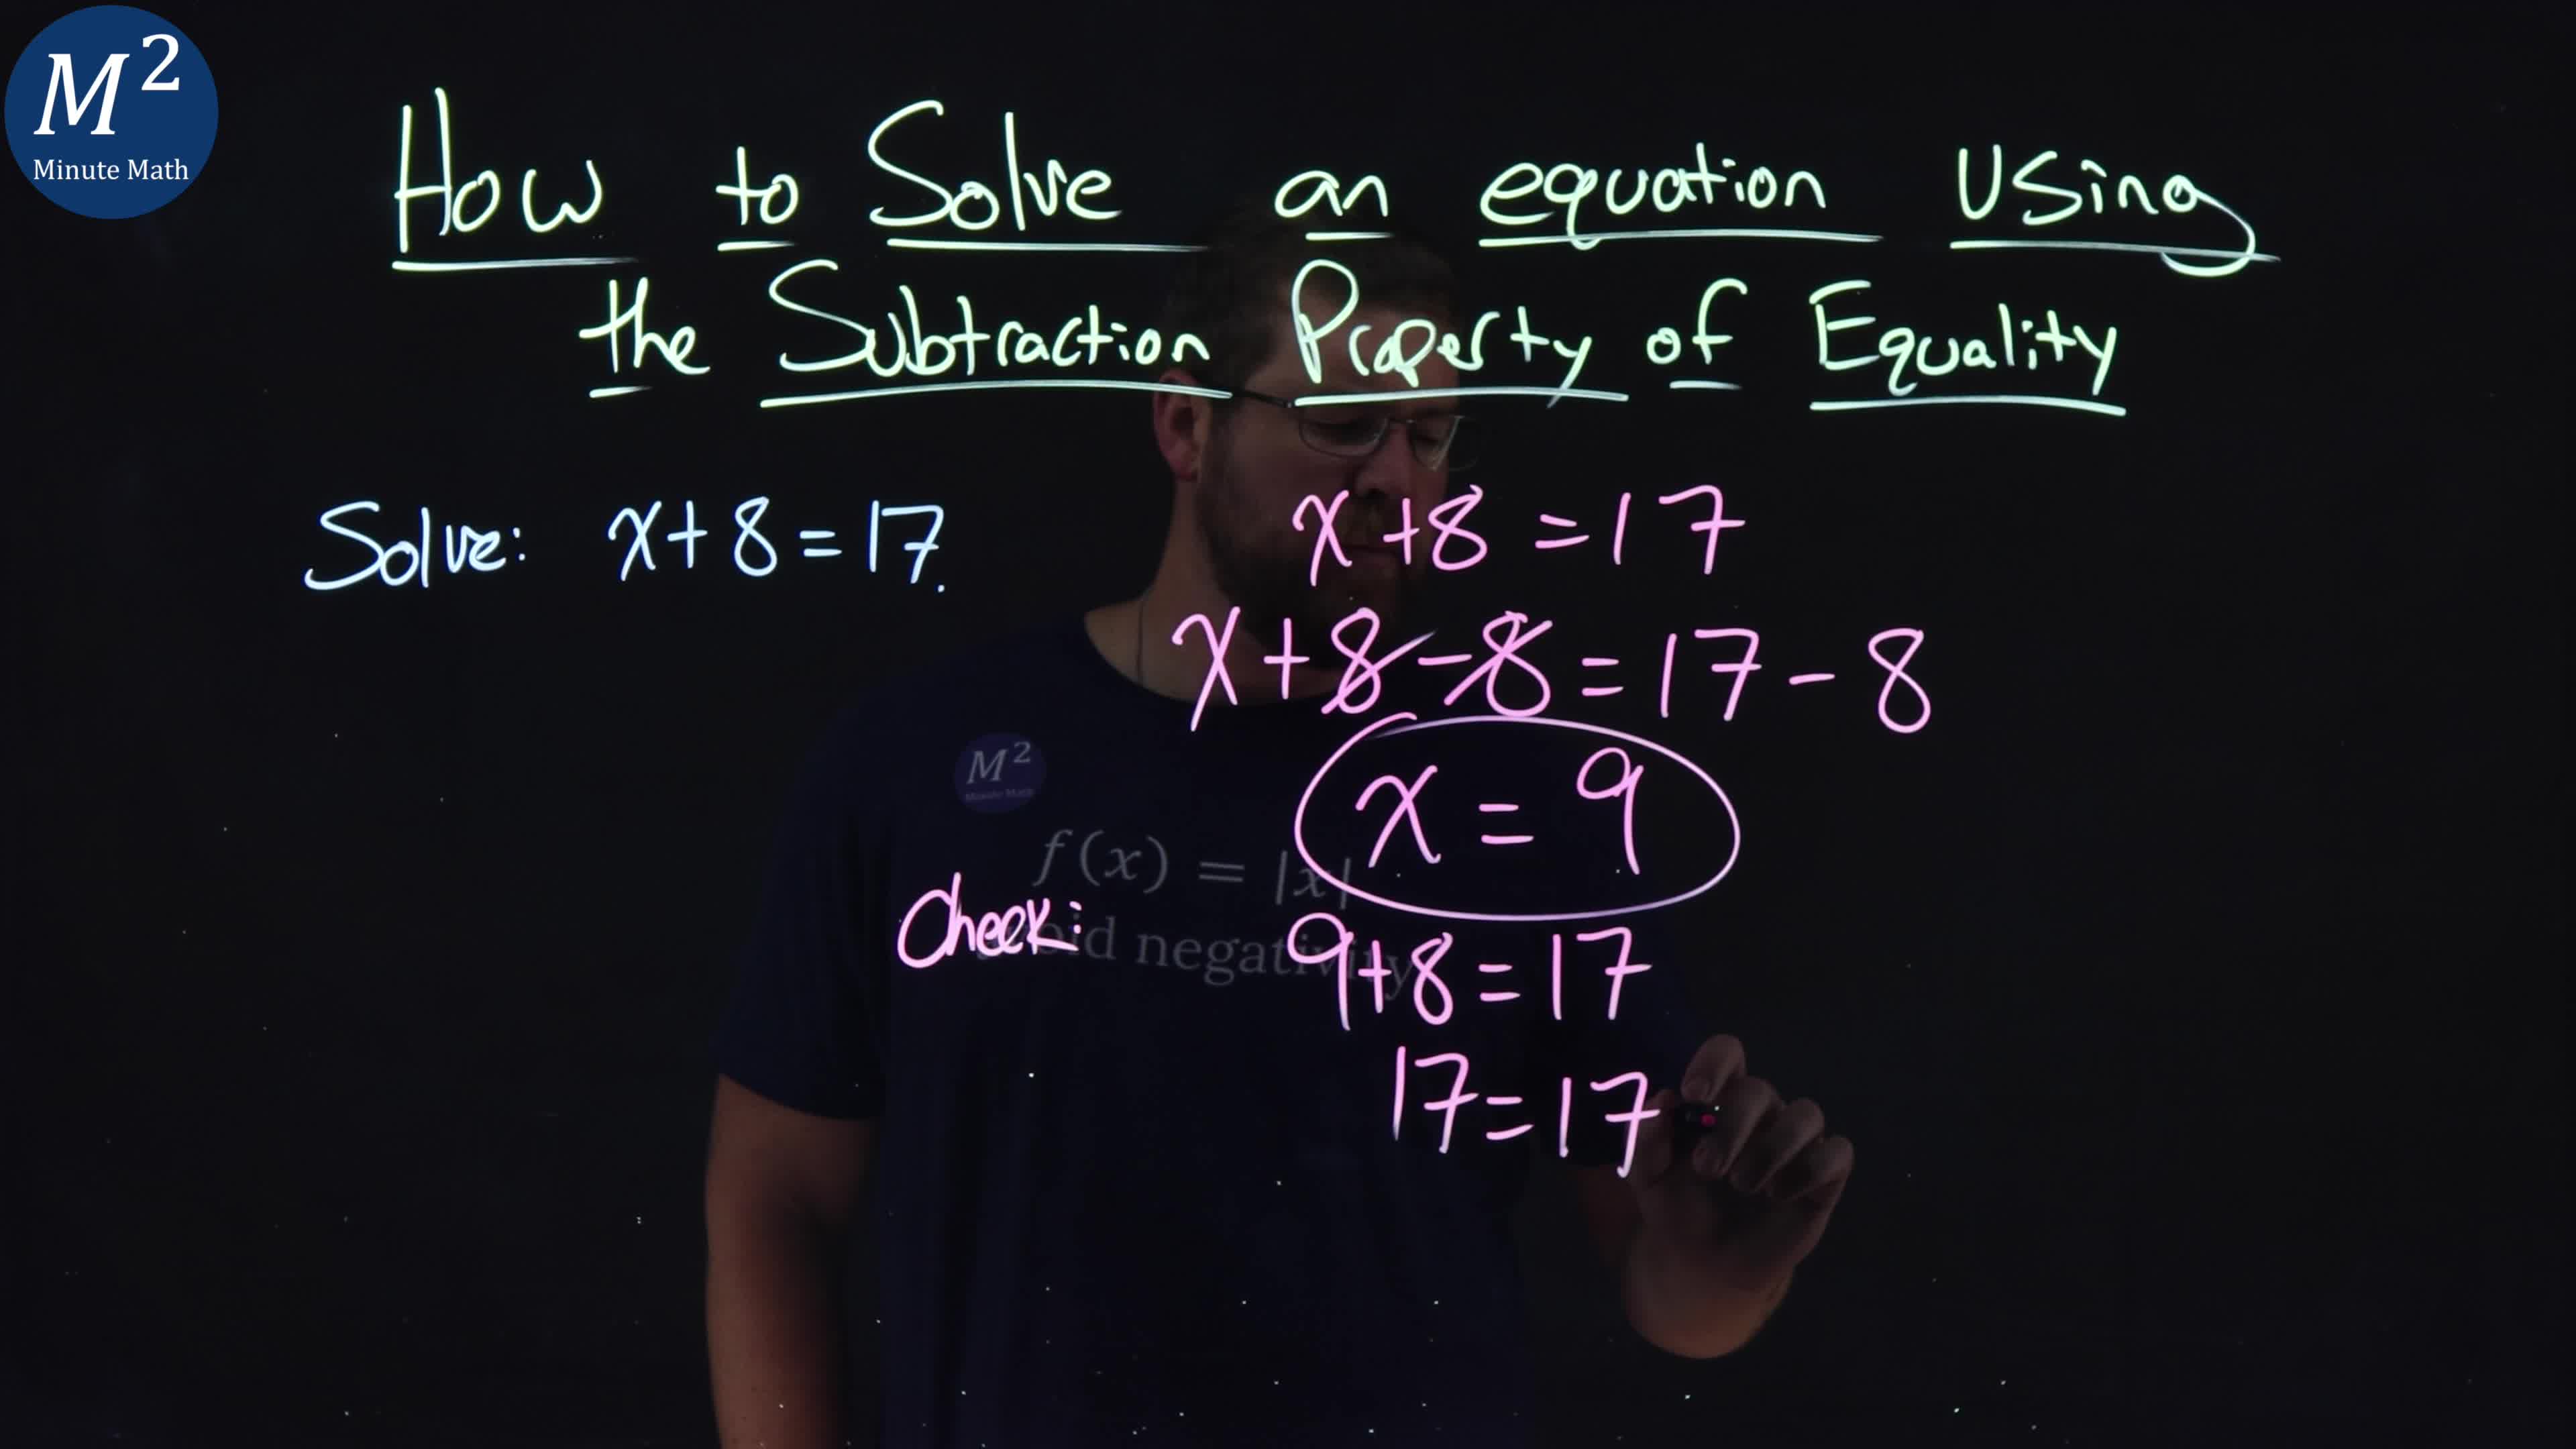 M²
Minute Math
How to Solve an equation Using
the Subtraction Property of Equality
Solve: x+8=17.
x+8=17
x+8-8=17-8
x=9
M²
Minute Math
f(x) = |x|
negativity
Check:
9+8=17
17=17